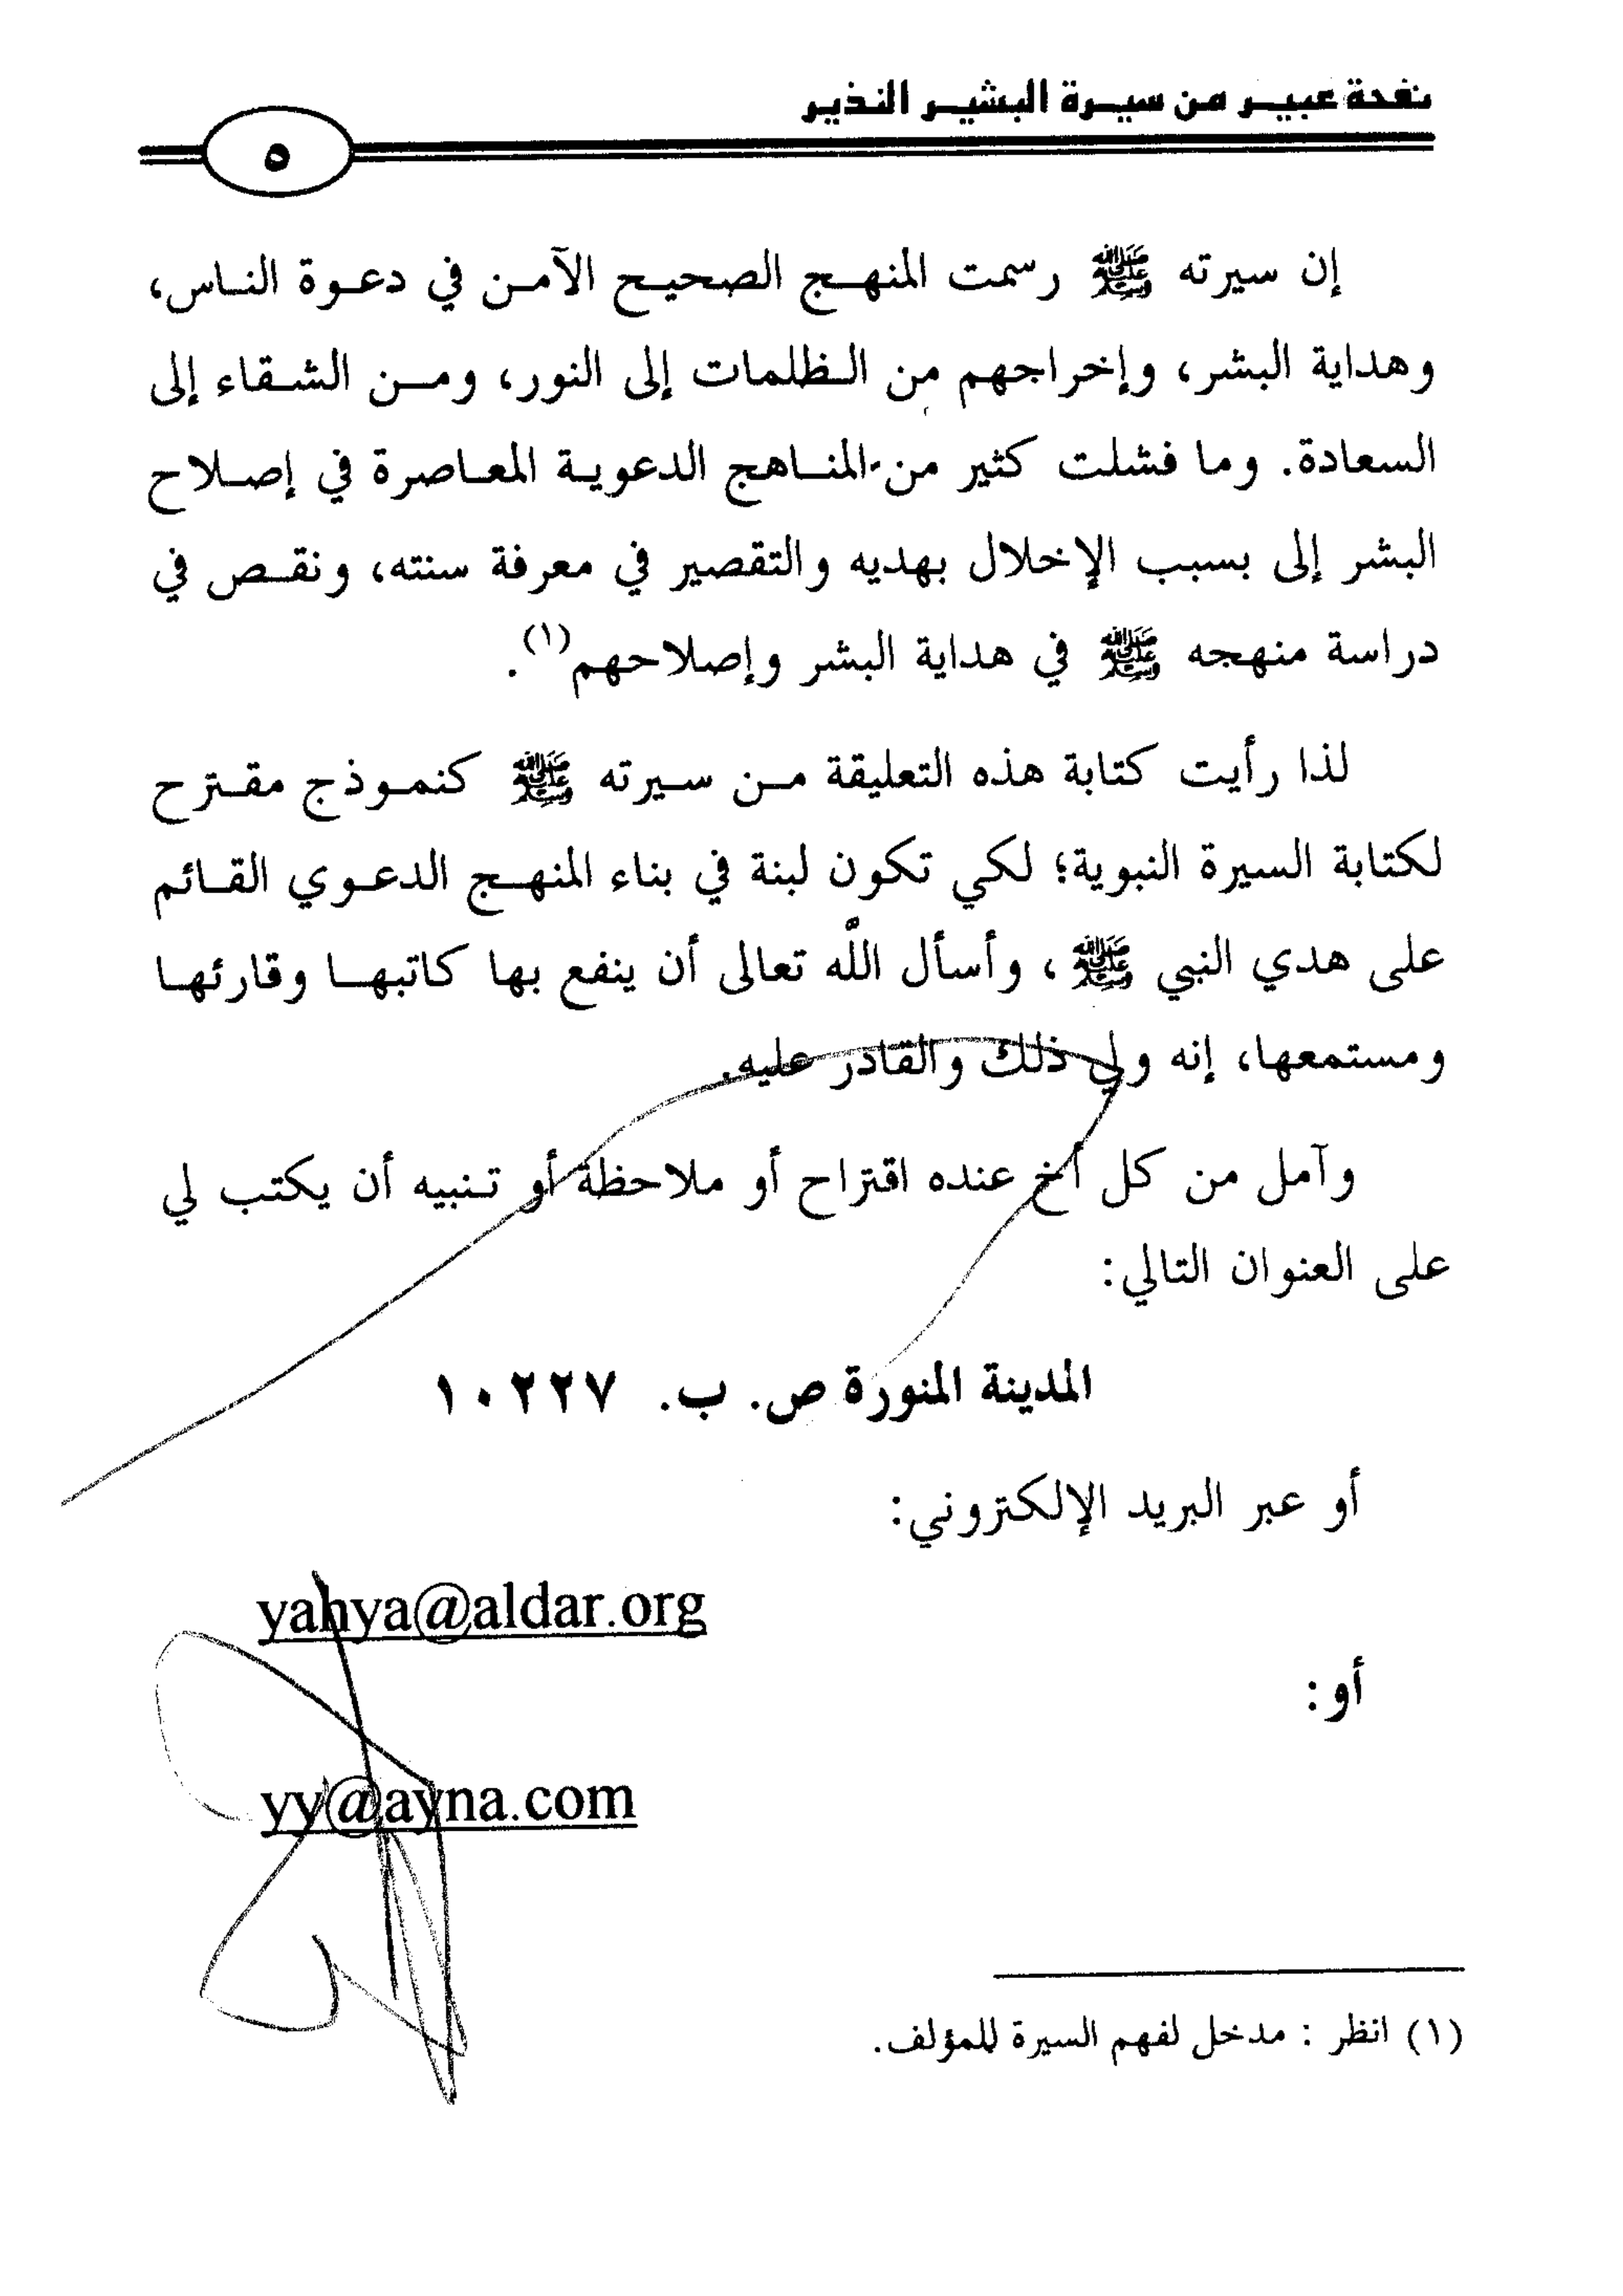 نفحة عبير من سيرة البشير النذير
٥
إن سيرته ﷺ رسمت المنهج الصحيح الآمن في دعوة الناس،
وهداية البشر، وإخراجهم من الظلمات إلى النور، ومن الشقاء إلى
السعادة. وما فشلت كثير من المناهج الدعوية المعاصرة في إصلاح
البشر إلى بسبب الإخلال بهديه والتقصير في معرفة سنته، ونقص في
دراسة منهجه ﷺ في هداية البشر وإصلاحهم(١).
لذا رأيت كتابة هذه التعليقة من سيرته ﷺ كنموذج مقترح
لكتابة السيرة النبوية؛ لكي تكون لبنة في بناء المنهج الدعوي القائم
على هدي النبي ﷺ، وأسأل الله تعالى أن ينفع بها كاتبها وقارئها
ومستمعها، إنه ولي ذلك والقادر عليه.
وآمل من كل أخ عنده اقتراح أو ملاحظة أو تنبيه أن يكتب لي
على العنوان التالي:
المدينة المنورة ص. ب. ١٠٢٢٧
أو عبر البريد الإلكتروني:
yahya@aldar.org
أو:
yy@ayna.com
(١) انظر : مدخل لفهم السيرة للمؤلف.